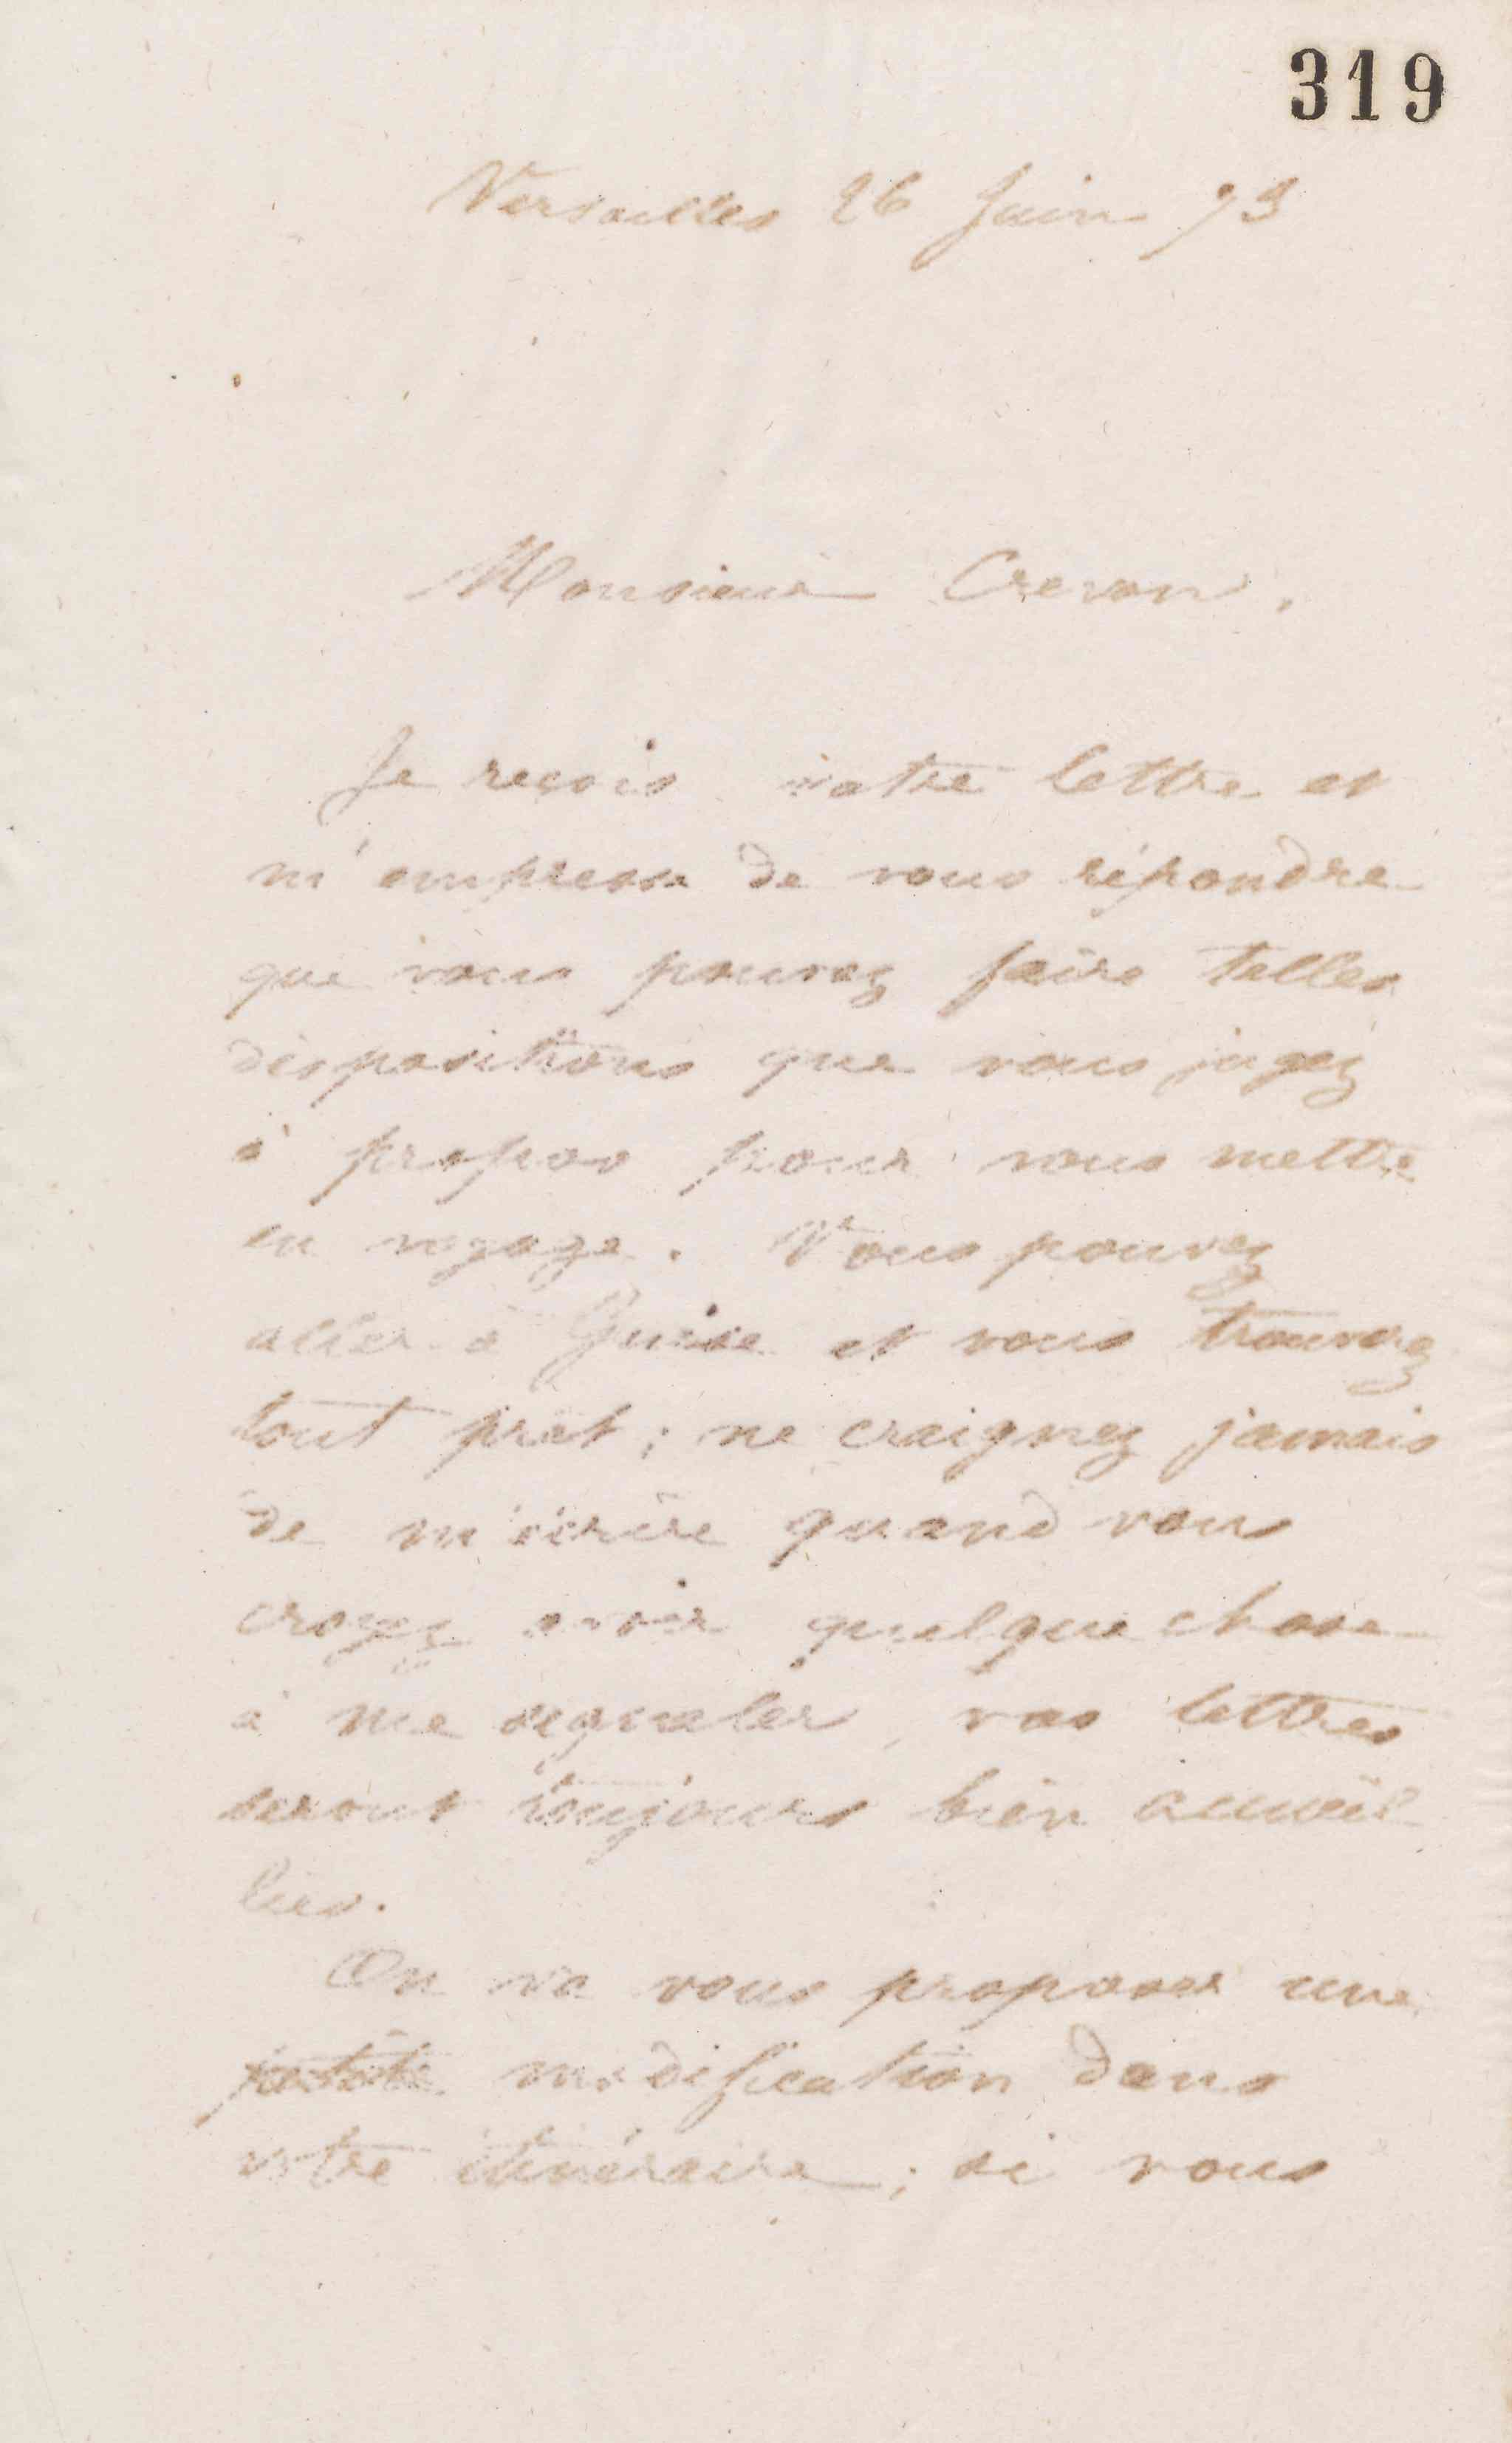 319
Versailles 26 Juin 73
Monsieur Crevon,
Je reçois votre lettre et
m'empresse de vous répondre
que vous pouvez faire telles
dispositions que vous jugez
à propos pour vous mettre
en voyage. Vous pouvez
aller à Guise et vous trouverez
tout prêt ; ne craignez jamais
de m'écrire quand vous
croyez avoir quelque chose
à me signaler, vos lettres
seront toujours bien accueil
lies.
On va vous proposer une
petite modification dans
votre itinéraire ; si vous